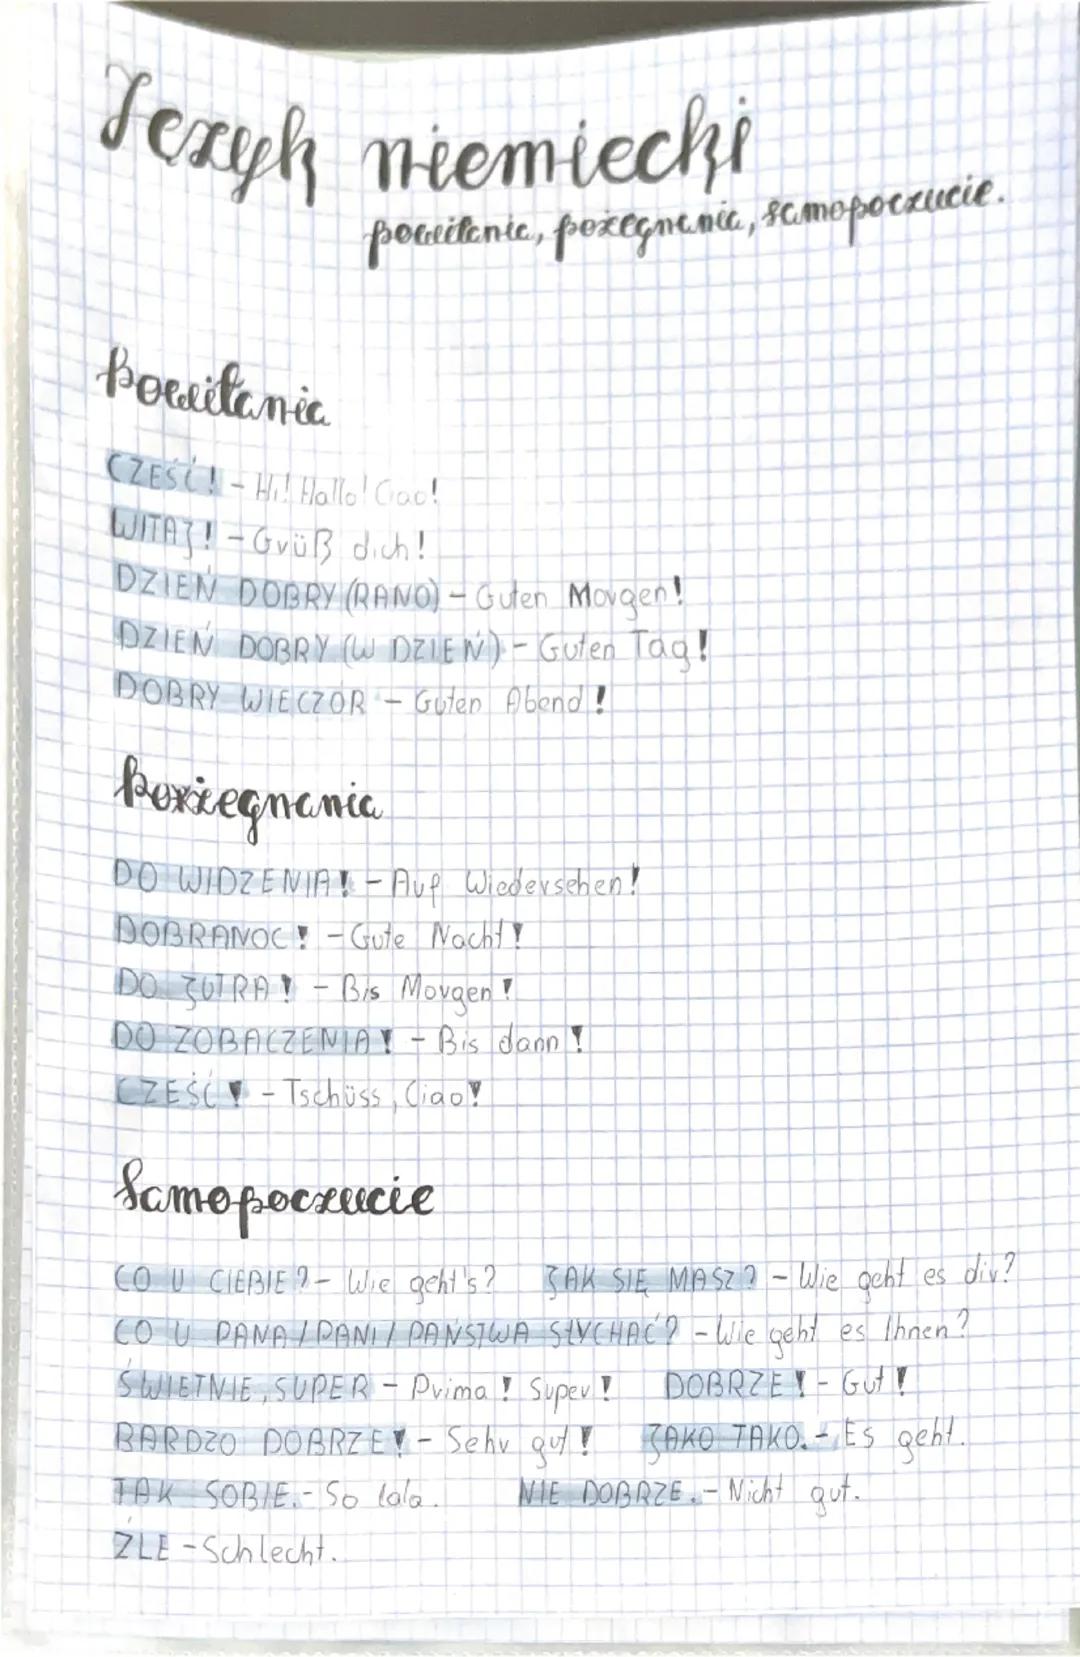 Język niemiecki
powitania, pożegnania, samopoczucie.
Powitania
CZEŚĆ! - Hi! Hallo! Ciao!
WITAJ! - Grüß dich!
DZIEŃ DOBRY (RANO) - Guten Morgen!
DZIEŃ DOBRY (W DZIEŃ) - Guten Tag!
DOBRY WIECZÓR - Guten Abend!
Pożegnania
DO WIDZENIA! - Auf Wiedersehen!
DOBRANOC! - Gute Nacht!
DO JUTRA! - Bis Morgen!
DO ZOBACZENIA! - Bis dann!
CZEŚĆ! - Tschüss, Ciao!
Samopoczucie
CO U CIEBIE? - Wie geht's? JAK SIĘ MASZ? - Wie geht es dir?
CO U PANA / PANI / PAŃSTWA SŁYCHAĆ? - Wie geht es Ihnen?
ŚWIETNIE, SUPER - Prima! Super! DOBRZE! - Gut!
BARDZO DOBRZE! - Sehr gut! JAKO TAKO. - Es geht.
TAK SOBIE. - So lala. NIE DOBRZE. - Nicht gut.
ŹLE - Schlecht.